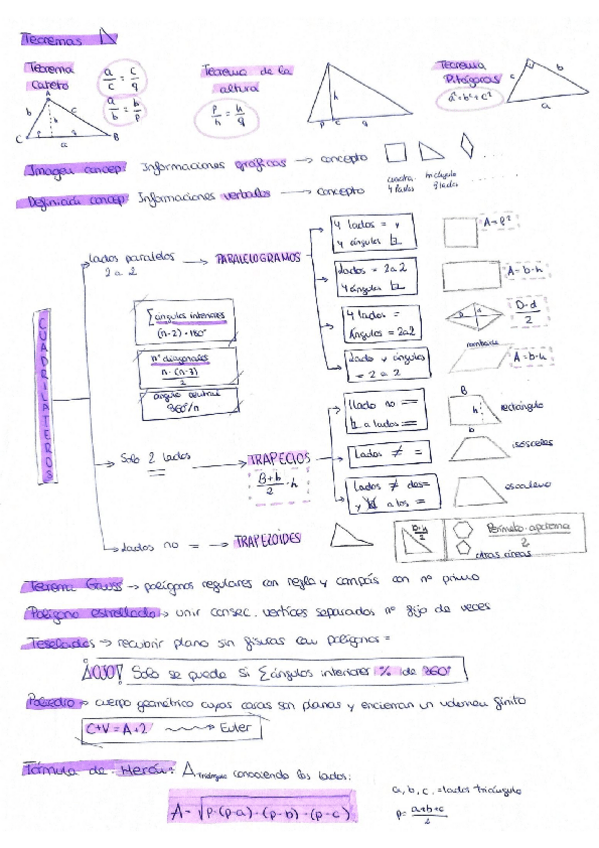 Teoremas
Teorema cateto
a/c = c/q
a/b = b/p
A
b
h
c
C
p
q
B
a
Teorema de la altura
p/h = h/q
h
p
c
q
Teorema Pitágoras
a² = b² + c²
c
b
a
Imagen concep: Informaciones gráficas → concepto
cuadra. 4 lados
triángulo 3 lados
Definición concep: Informaciones verbales → concepto
CUADRILÁTEROS
lados paralelos 2 a 2 → PARALELOGRAMOS
4 lados = y
4 ángulos
A = l²
lados = 2a2
4 ángulos
A = b·h
4 lados =
Ángulos = 2a2
D
d
D·d/2
romboide
lado y ángulos
= 2 a 2
A = b·h
∑ ángulos interiores
(n-2)·180°
nº diagonales
n·(n-3)/2
ángulo central
360°/n
Solo 2 lados = → TRAPECIOS
B+b/2 · h
1 lado no =
a lados =
B
h
b
rectángulo
Lados ≠ =
isósceles
Lados ≠ dos=
y a los =
escaleno
lados no = → TRAPEZOIDES
b·h/2
Perímetro·apotema/2
otras áreas
Teorema Gauss → polígonos regulares con regla y compás con nº primo
Polígono estrellado → unir consec. vertices separados nº fijo de veces
Teselados → recubrir plano sin fisuras con polígonos =
¡OJO! Solo se puede si ∑ ángulos interiores % de 360°
Poliedro → cuerpo geométrico cuyas caras son planas y encierran un volumen finito
C+V = A+2 → Euler
Fórmula de Herón: A triángulo conociendo los lados:
a, b, c. = lados triángulo
A = √p·(p-a)·(p-b)·(p-c)
p = a+b+c/2